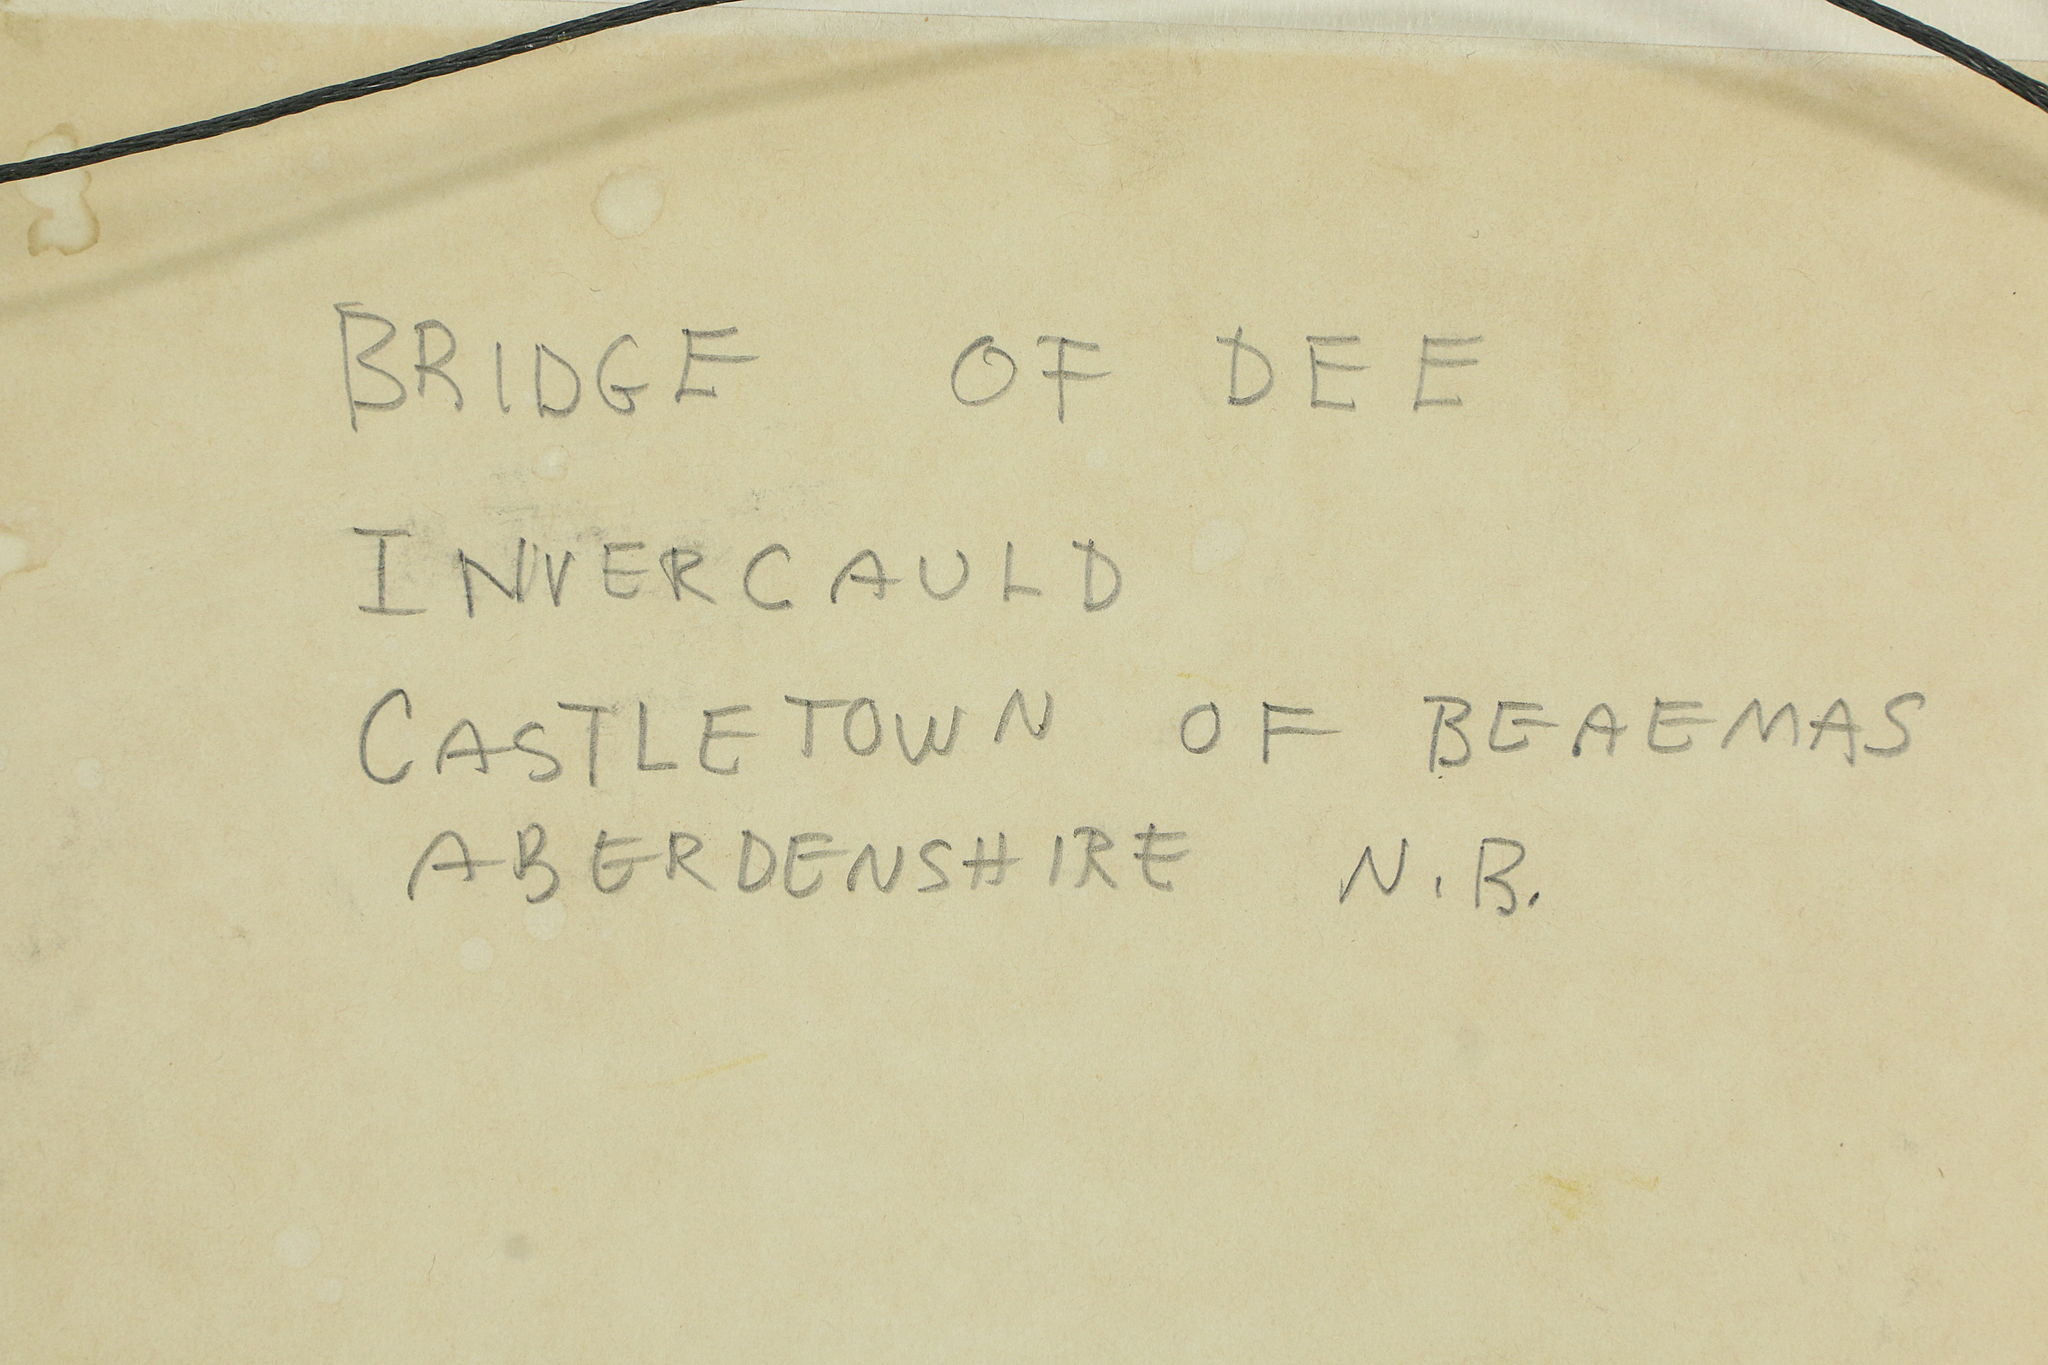 BRIDGE OF DEE
INVERCAULD
CASTLETOWN OF BEAEMAS
ABERDENSHIRE N.B.